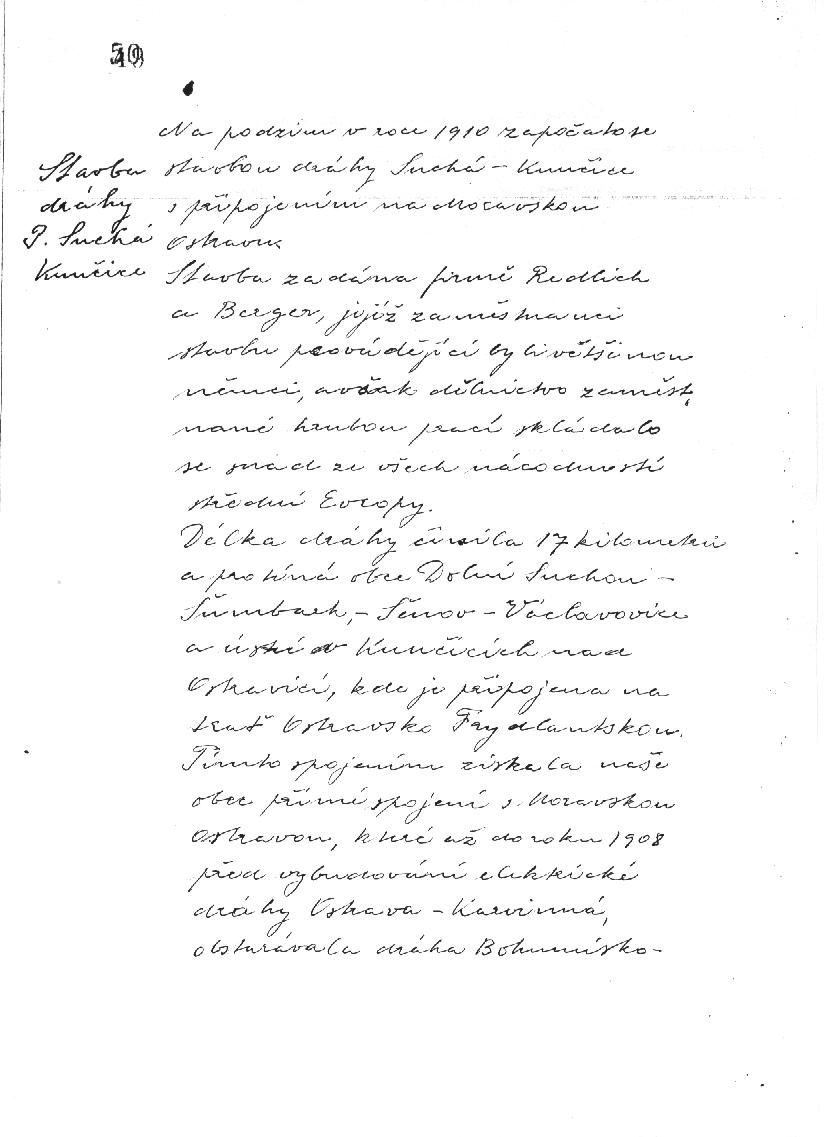 Na podzim v roce 1910 započato se
Stavba
dráhy
P. Suchá
Kunčice
stavbou dráhy Suchá - Kunčice
s připojením na Moravskou
Ostravu.
Stavba zadána firmě Redlich
a Berger, jejíž zaměstnanci
stavbu provádějící byli většinou
němci, avšak dělnictvo zaměst,
nané hrubou prací skládalo
se snad ze všech národností
střední Evropy.
Délka dráhy činila 17 kilometrů
a protíná obce Dolní Suchou -
Šumbark, - Šenov - Václavovice
a ústí v Kunčicích nad
Ostravicí, kde je připojena na
trať Ostravsko Frydlantskou.
Tímto spojením získala naše
obec přímé spojení s Moravskou
Ostravou, které až do roku 1908
před vybudování elektrické
dráhy Ostrava - Karvinná,
obstarávala dráha Bohumísko-